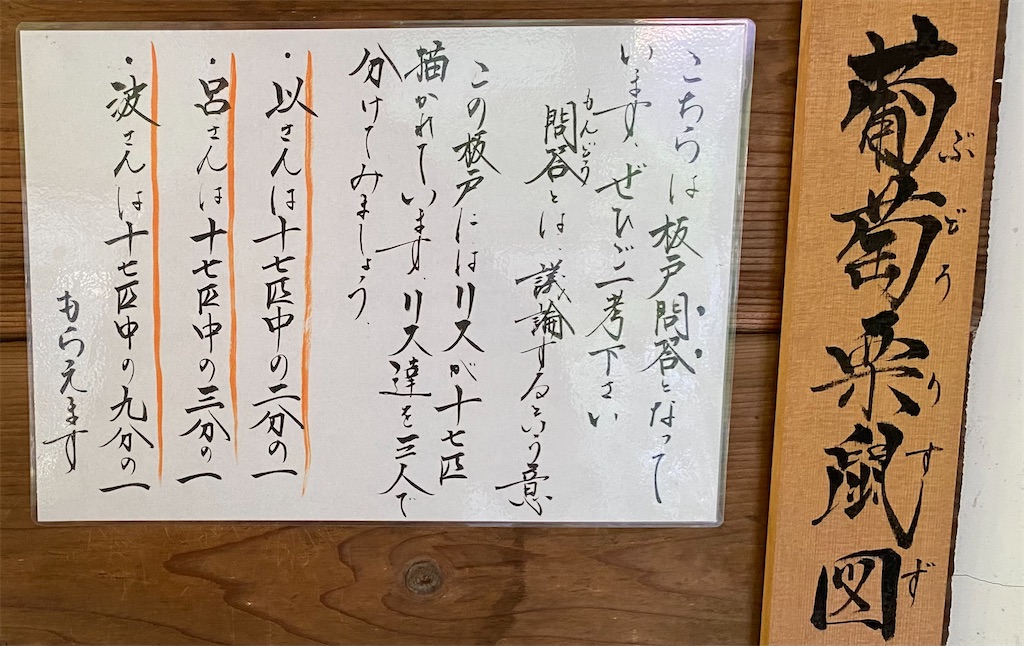 葡萄栗鼠図
ぶどうりすず
こちらは板戸問答となって
います、ぜひご一考下さい
もんどう
問答とは、議論するという意
この板戸にはリスが十七匹
描かれています、リス達を三人で
分けてみましょう.
・以さんは十七匹中の二分の一
・呂さんは十七匹中の三分の一
・波さんは十七匹中の九分の一
もらえます